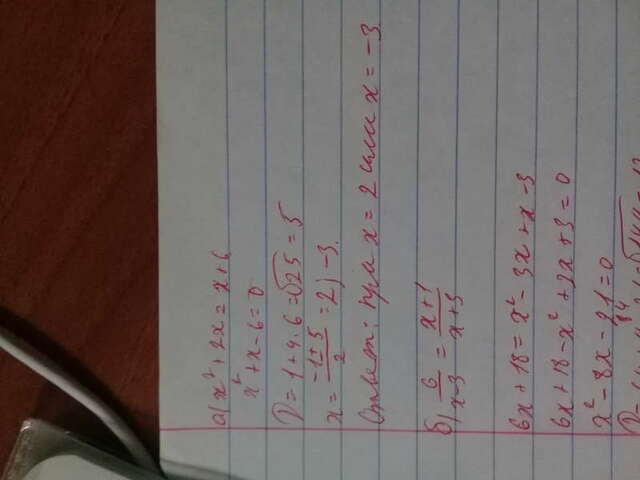 а) x² + 2x = x + 6
x² + x - 6 = 0
D = 1 + 4 · 6 = √25 = 5
x = (-1 ± 5)/2 = 2; -3.
Ответ: при x = 2 или x = -3
б) 6/(x-3) = (x+1)/(x+3)
6x + 18 = x² - 3x + x - 3
6x + 18 - x² + 2x + 3 = 0
x² - 8x - 21 = 0
84